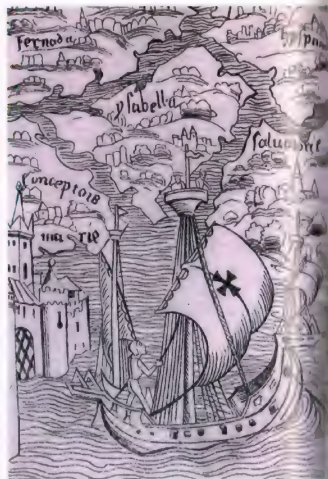 Fernada
ysabella
Saluatorie
conceptoie
marie